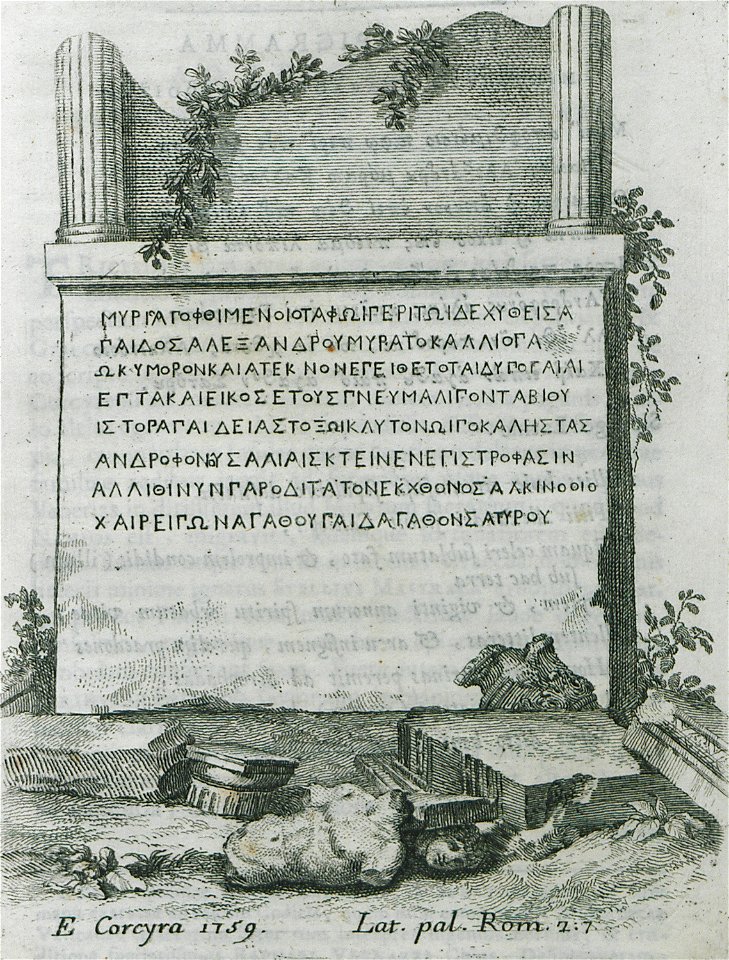 ΜΥΡΙΑΓΟΦΘΙΜΕΝΟΙΟΤΑΦΩΙΓΕΡΙΤΩΙΔΕΧΥΘΕΙΣΑ
ΓΑΙΔΟΣΑΛΕΞΑΝΔΡΟΥΜΥΡΑΤΟΚΑΛΛΙΟΓΑ
ΩΚΥΜΟΡΟΝΚΑΙΑΤΕΚΝΟΝΕΓΕΙΘΕΤΟΤΑΙΔΥΓΟΓΑΙΑΙ
ΕΓΤΑΚΑΙΕΙΚΟΣΕΤΟΥΣΓΝΕΥΜΑΛΙΓΟΝΤΑΒΙΟΥ
ΙΣΤΟΡΑΓΑΙΔΕΙΑΣΤΟΞΩΙΚΛΥΤΟΝΩΙΓΟΚΑΛΗΣΤΑΣ
ΑΝΔΡΟΦΟΝΟΥΣΑΛΙΑΙΣΚΤΕΙΝΕΝΕΓΙΣΤΡΟΦΑΣΙΝ
ΑΛΛΙΘΙΝΥΝΓΑΡΟΔΙΤΑΤΟΝΕΚΧΘΟΝΟΣΑΛΚΙΝΟΟΙΟ
ΧΑΙΡΕΙΓΩΝΑΓΑΘΟΥΓΑΙΔΑΓΑΘΟΝΣΑΤΥΡΟΥ
E Corcyra 1759. Lat. pal. Rom. 2.7